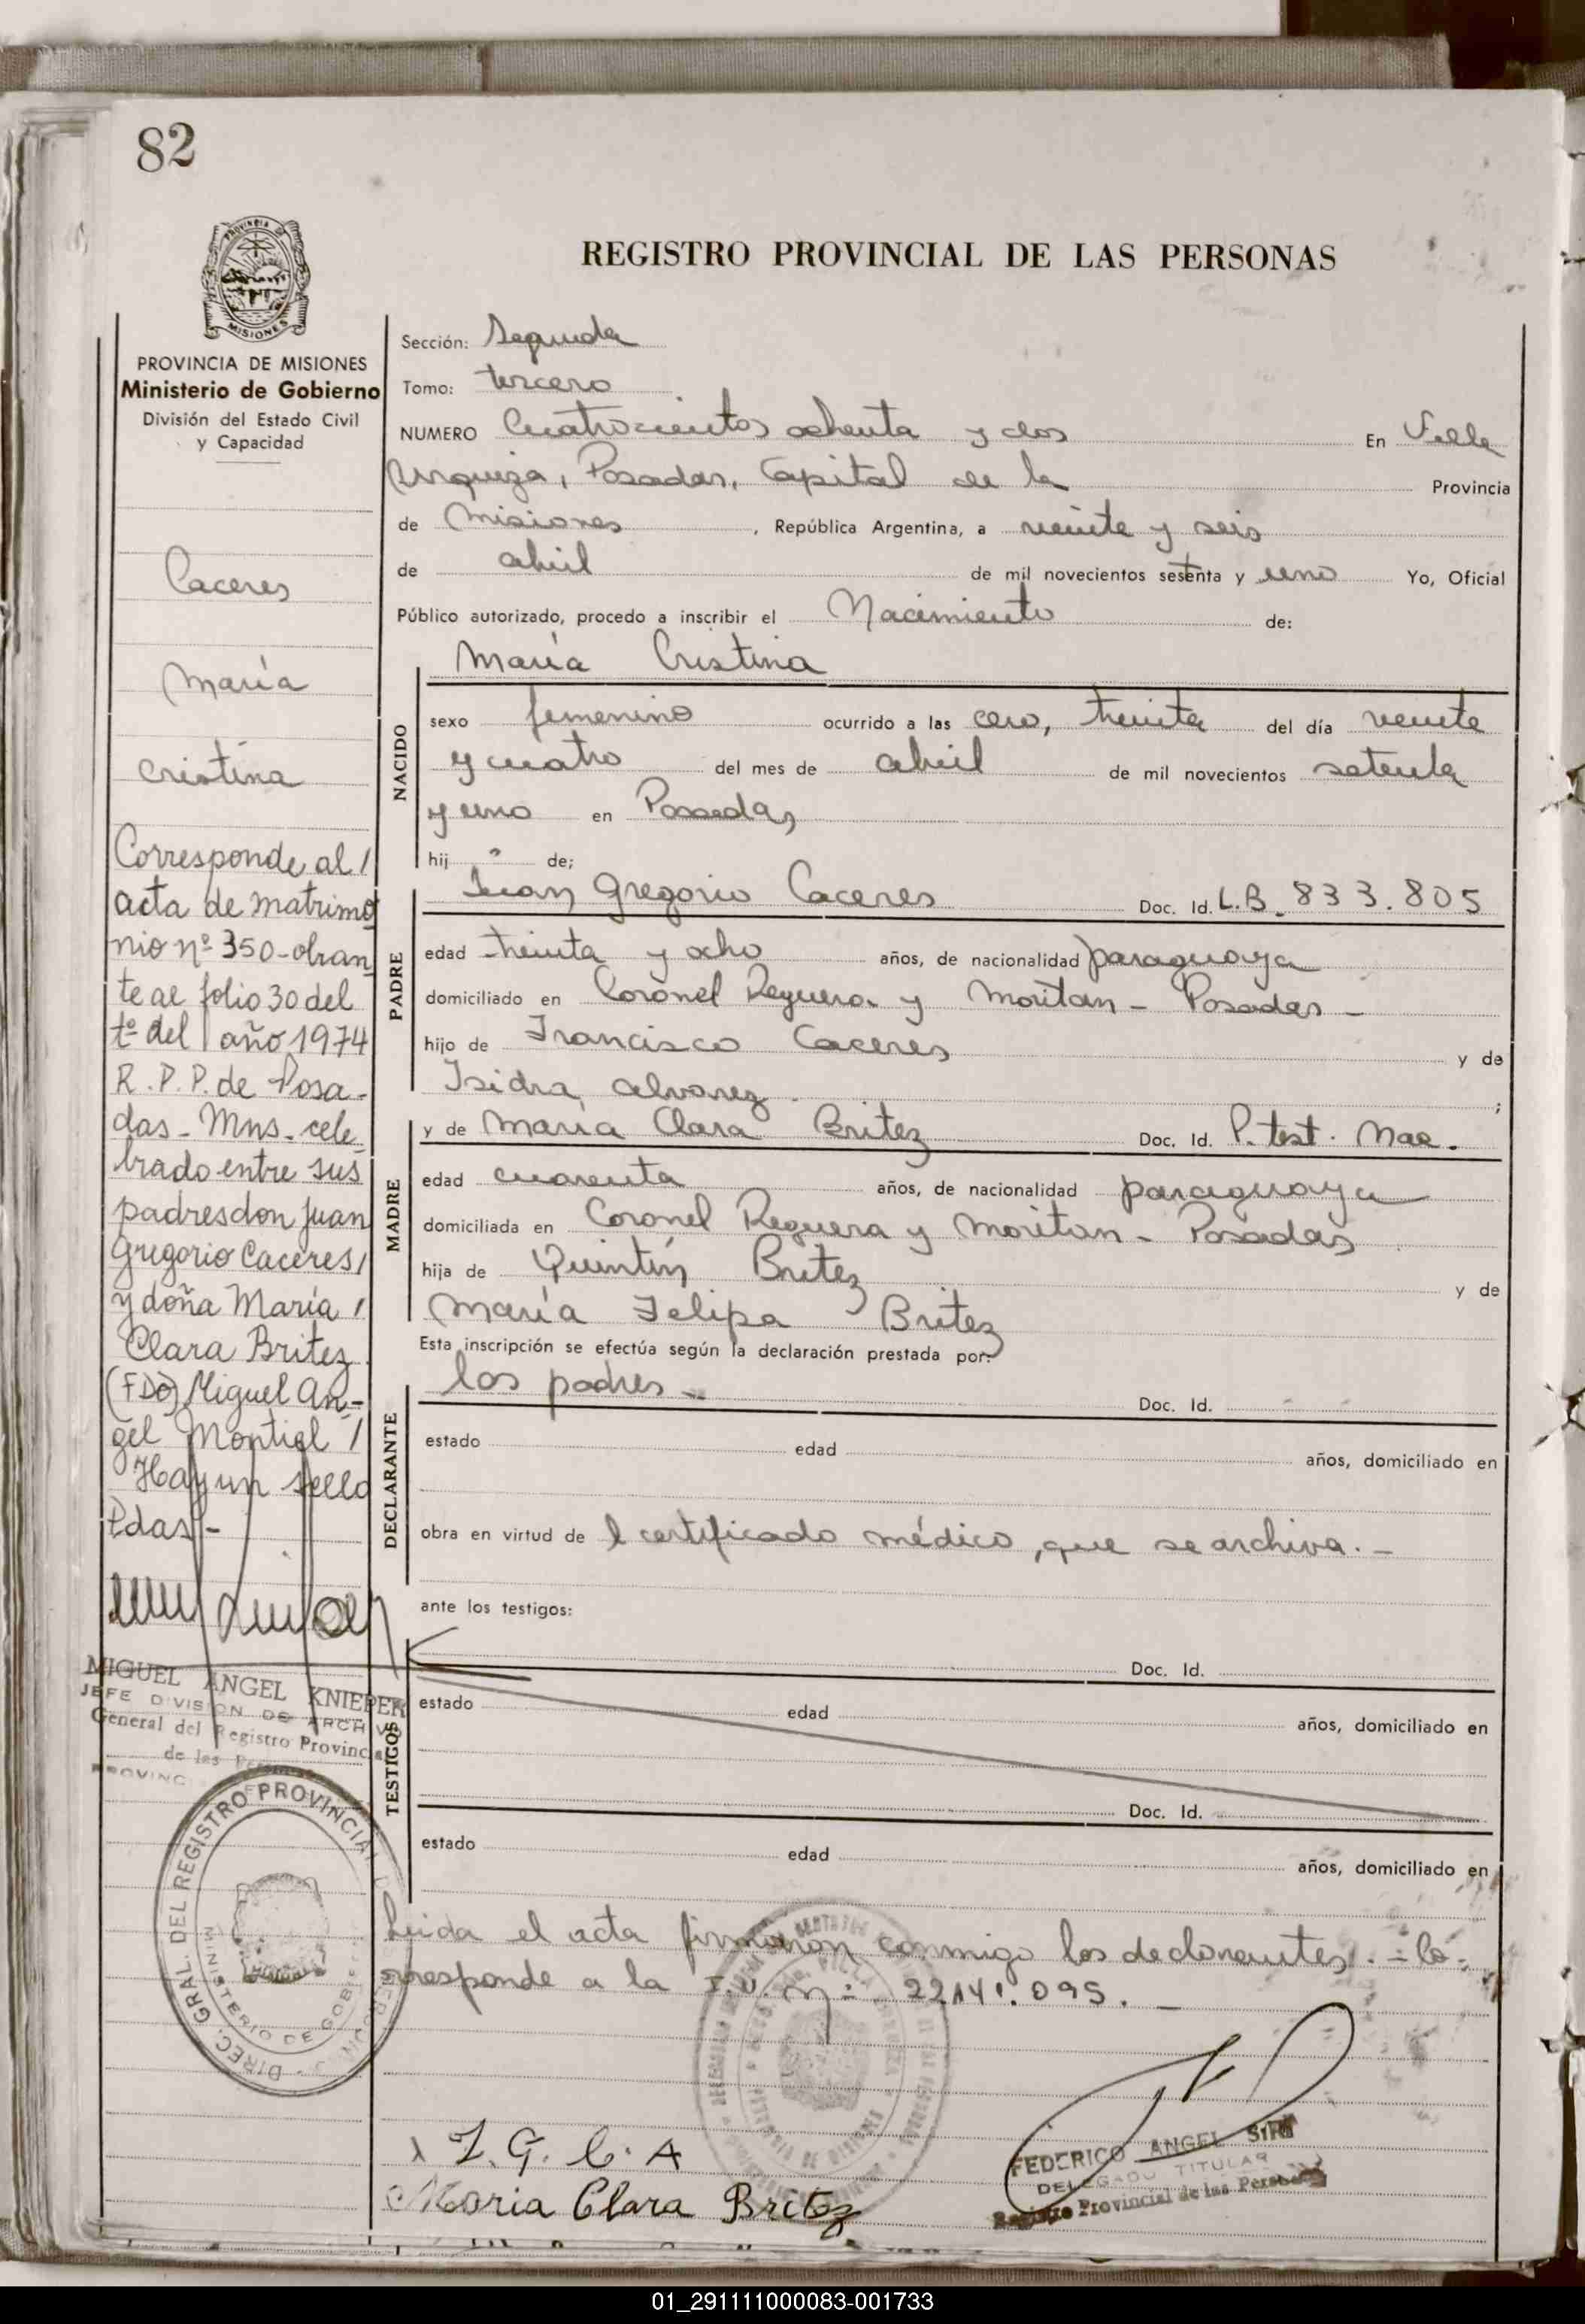 82
PROVINCIA DE
MISIONES
PROVINCIA DE MISIONES
Ministerio de Gobierno
División del Estado Civil
y Capacidad
REGISTRO PROVINCIAL DE LAS PERSONAS
Sección: Segunda
Tomo: tercero
NUMERO Cuatrocientos ochenta y dos En Villa
Urquiza, Posadas, Capital de la Provincia
de Misiones, República Argentina, a veinte y seis
de abril de mil novecientos setenta y uno Yo, Oficial
Público autorizado, procedo a inscribir el Nacimiento de:
María Cristina
NACIDO
sexo femenino ocurrido a las cero, treinta del día veinte
y cuatro del mes de abril de mil novecientos setenta
y uno en Posadas
hij de;
PADRE
Juan Gregorio Caceres Doc. Id. L.B. 833.805
edad treinta y ocho años, de nacionalidad paraguaya
domiciliado en Coronel Reguera y Moritan - Posadas -
hijo de Francisco Caceres y de
Isidra Alvarez ;
MADRE
y de María Clara Britez Doc. Id. P. test. Nac.
edad cuarenta años, de nacionalidad paraguaya
domiciliada en Coronel Reguera y Moritan - Posadas
hija de Quintín Britez y de
María Felipa Britez
Esta inscripción se efectúa según la declaración prestada por:
DECLARANTE
los padres - Doc. Id.
estado edad años, domiciliado en
obra en virtud de l certificado médico, que se archiva. -
ante los testigos:
TESTIGOS
Doc. Id.
estado edad años, domiciliado en
Doc. Id.
estado edad años, domiciliado en
Leida el acta firmaron conmigo los declarantes. = Co=
rresponde a la I.U. Nº: 22141.095. -
J. G. C. A
Maria Clara Britez
FEDERICO ANGEL
DELEGADO TITULAR
Registro Provincial de las Personas
Caceres
María
Cristina
Corresponde al /
acta de matrimo
nio nº 350-obran
te al folio 30 del
tº del año 1974
R.P.P. de Posa-
das - Mns - cele
brado entre sus
padres don Juan
Gregorio Caceres /
y doña María /
Clara Britez
(FDO) Miguel An-
gel Montiel /
Hay un sello
Pdas -
MIGUEL ANGEL KNIEPER
JEFE DIVISION DE ARCHIVO
General del Registro Provincial
de las
DIREC. GRAL. DEL REGISTRO PROVINCIAL
MINISTERIO DE GOBIERNO
01_291111000083-001733